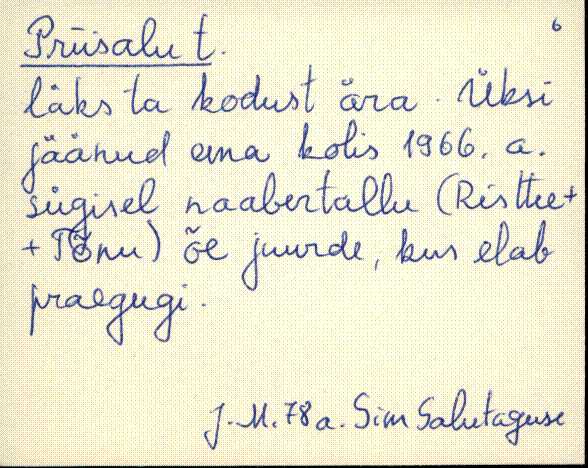 6
Priisalu t.
läks ta kodust ära. Üksi
jäänud ema kolis 1966. a.
sügisel naabertallu (Risttee +
+ Tõnu) õe juurde, kus elab
praegugi.
J. M. 78 a. Sim Salutaguse